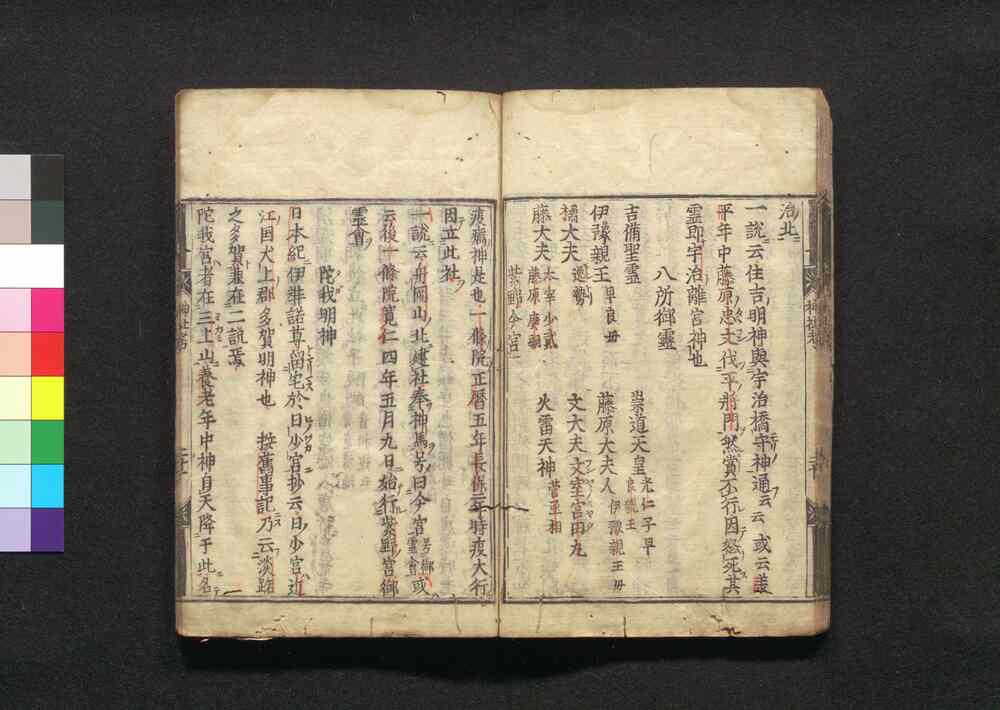 治北
一説云住吉明神與宇治橋守神通云云 或云羨
平年中藤原忠文伐平將門然賞不行因愁死其
靈即宇治離宮神也
八所御靈
吉備聖靈 崇道天皇 光仁子早良親王
伊豫親王 早良弟 藤原大夫人 伊豫親王母
橘大夫 逸勢 文大夫 文室宮田丸
藤大夫 太宰少貳藤原廣嗣 火雷天神 菅丞相
紫野今宮
疫癘神是也一條院正暦五年長保三年時疫大行
因立此社
一説云舟岡山北建社奉神馬号曰今宮 号御靈會 或
云後一條院寛仁四年五月九日始行紫野宮御
靈會
陀我明神
日本紀伊弉諾尊留宅於日少宮抄云日少宮近
江国犬上郡多賀明神也 按舊事記乃云淡路
之多賀兼在二説焉
陀我宮者在三上山養老年中神自天降于此名
神社考